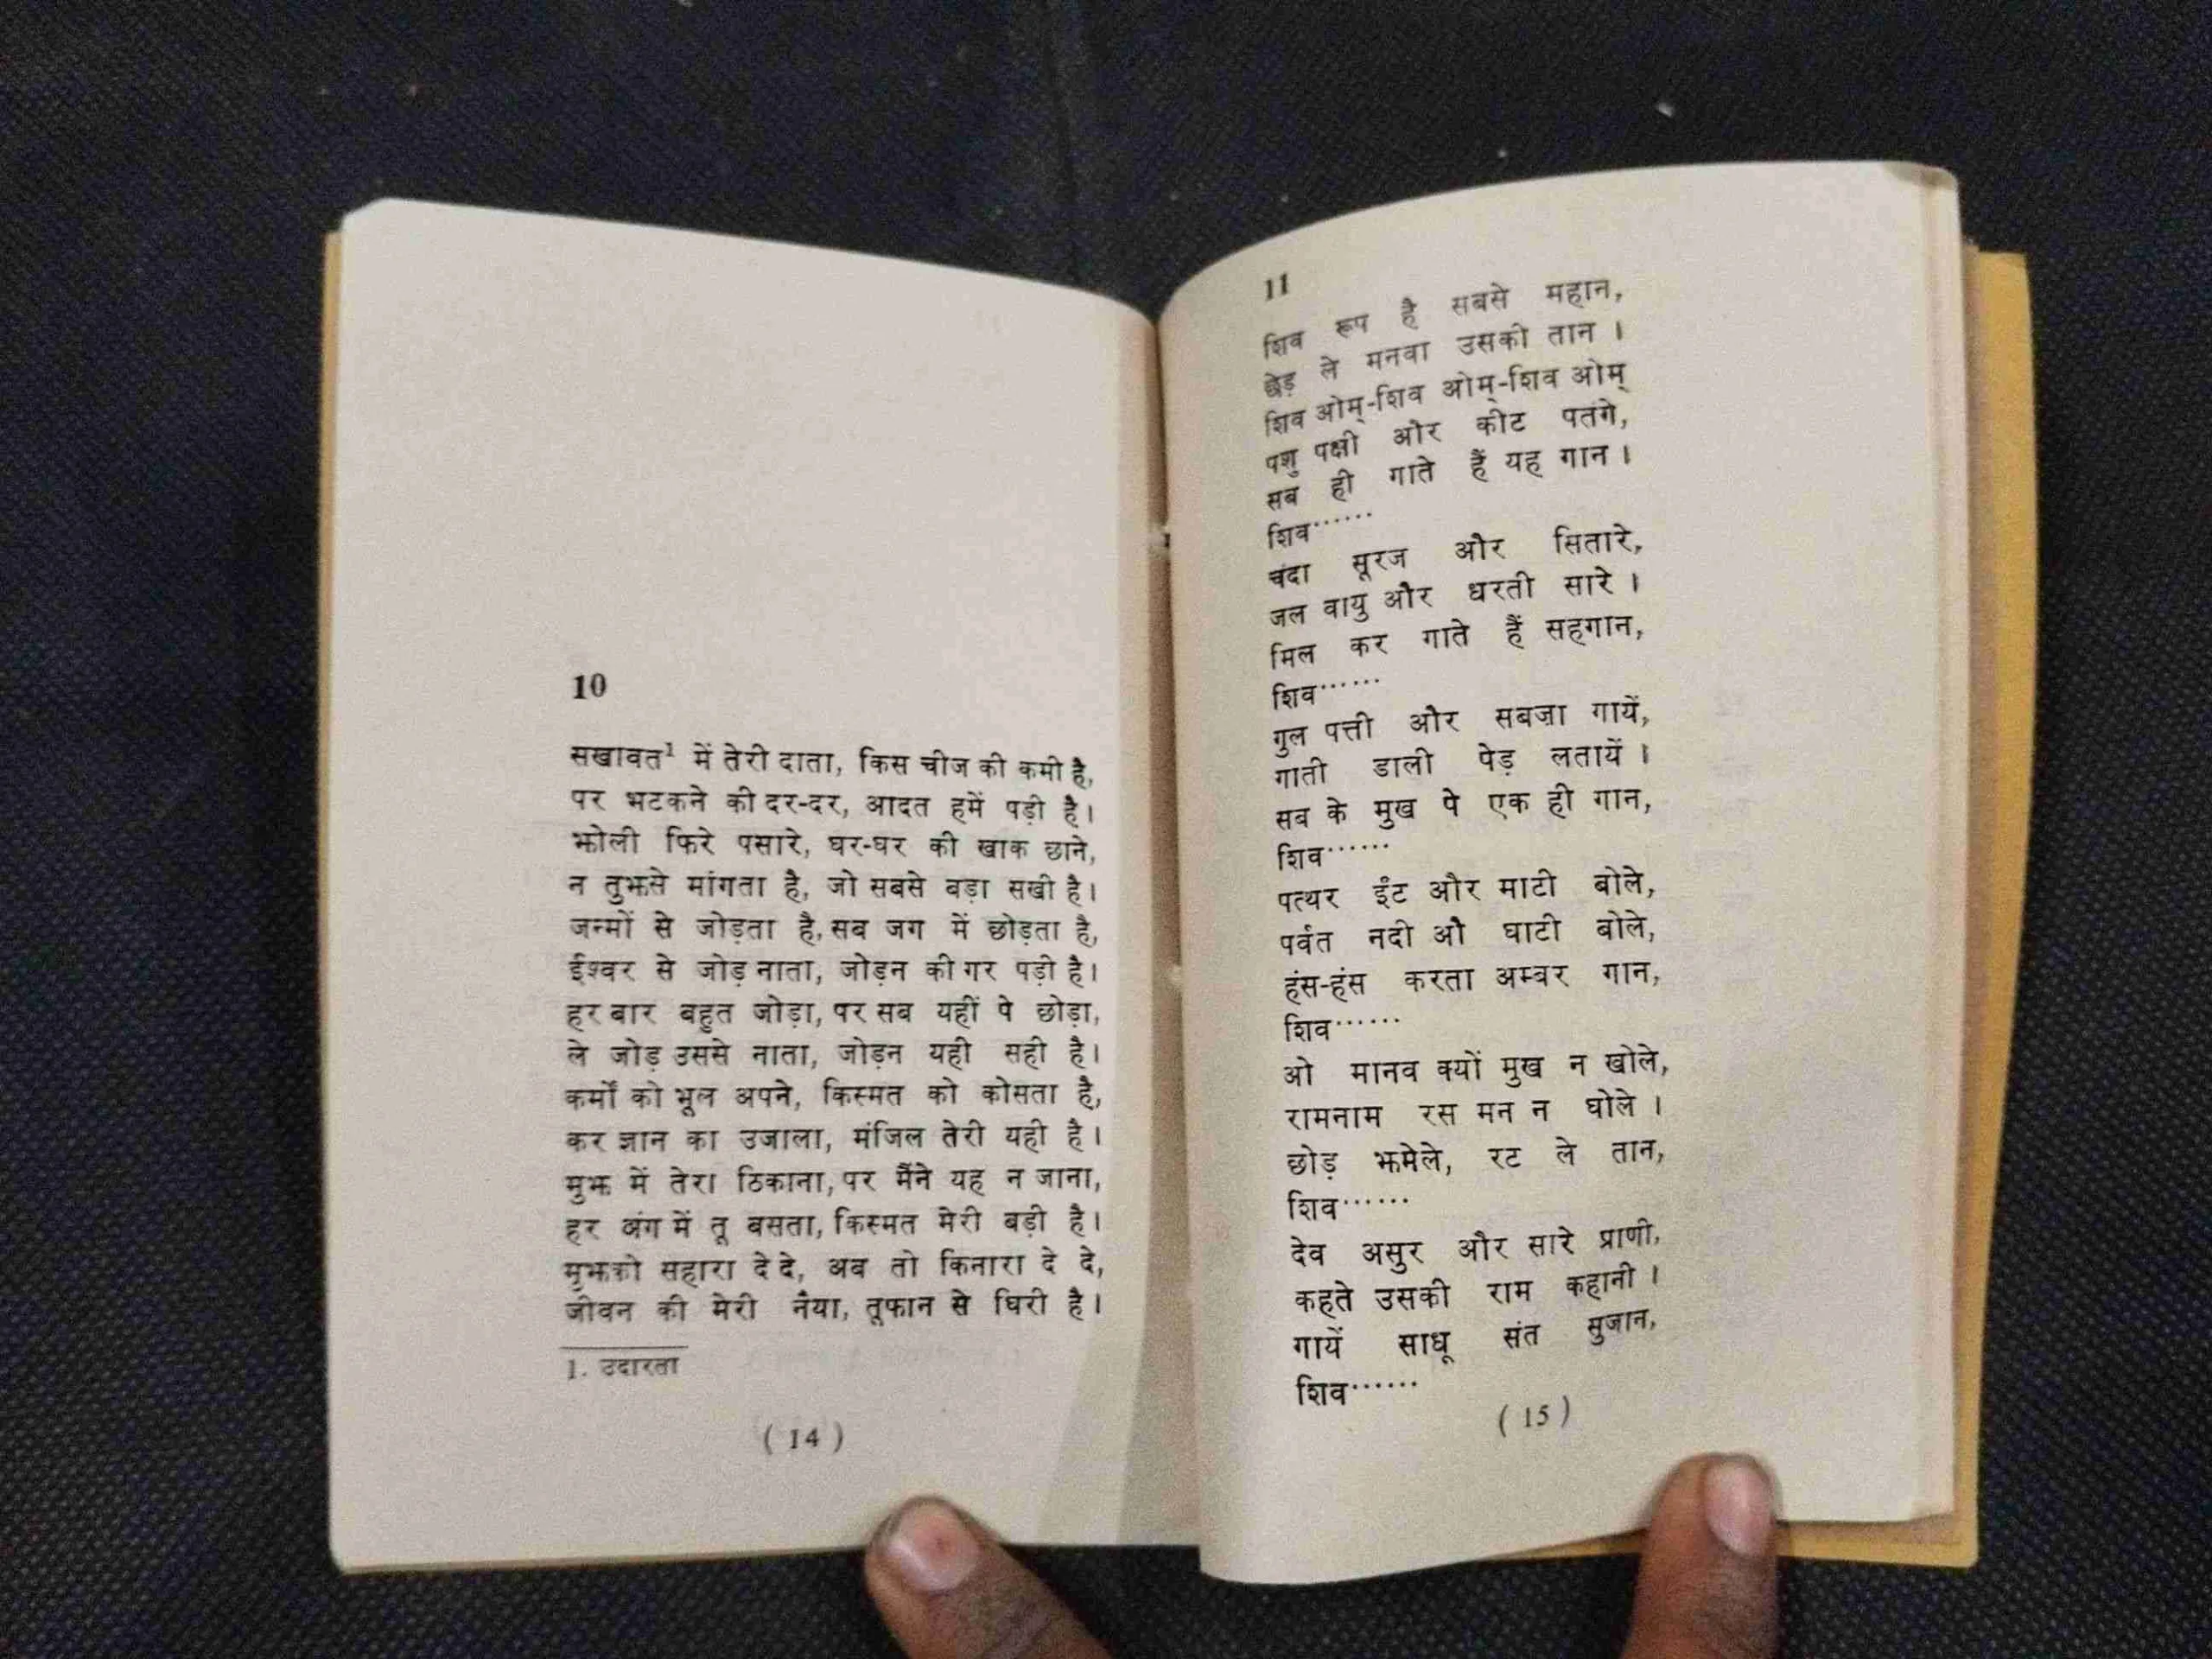 10
सखावत¹ में तेरी दाता, किस चीज की कमी है,
पर भटकने की दर-दर, आदत हमें पड़ी है।
झोली फिरे पसारे, घर-घर की खाक छाने,
न तुझसे मांगता है, जो सबसे बड़ा सखी है।
जन्मों से जोड़ता है, सब जग में छोड़ता है,
ईश्वर से जोड़ नाता, जोड़न की गर पड़ी है।
हर बार बहुत जोड़ा, पर सब यहीं पे छोड़ा,
ले जोड़ उससे नाता, जोड़न यही सही है।
कर्मों को भूल अपने, किस्मत को कोसता है,
कर ज्ञान का उजाला, मंजिल तेरी यही है।
मुझ में तेरा ठिकाना, पर मैंने यह न जाना,
हर अंग में तू बसता, किस्मत मेरी बड़ी है।
मुझको सहारा दे दे, अब तो किनारा दे दे,
जीवन की मेरी नैया, तूफान से घिरी है।
1. उदारता
( 14 )
11
शिव रूप है सबसे महान,
छेड़ ले मनवा उसकी तान ।
शिव ओम्-शिव ओम्-शिव ओम्
पशु पक्षी और कीट पतंगे,
सब ही गाते हैं यह गान ।
शिव······
चंदा सूरज और सितारे,
जल वायु और धरती सारे ।
मिल कर गाते हैं सहगान,
शिव······
गुल पत्ती और सबज़ा गायें,
गाती डाली पेड़ लतायें ।
सब के मुख पे एक ही गान,
शिव······
पत्थर इंट और माटी बोले,
पर्वत नदी औ घाटी बोले,
हंस-हंस करता अम्बर गान,
शिव······
ओ मानव क्यों मुख न खोले,
रामनाम रस मन न घोले ।
छोड़ झमेले, रट ले तान,
शिव······
देव असुर और सारे प्राणी,
कहते उसकी राम कहानी ।
गायें साधू संत सुजान,
शिव······
( 15 )